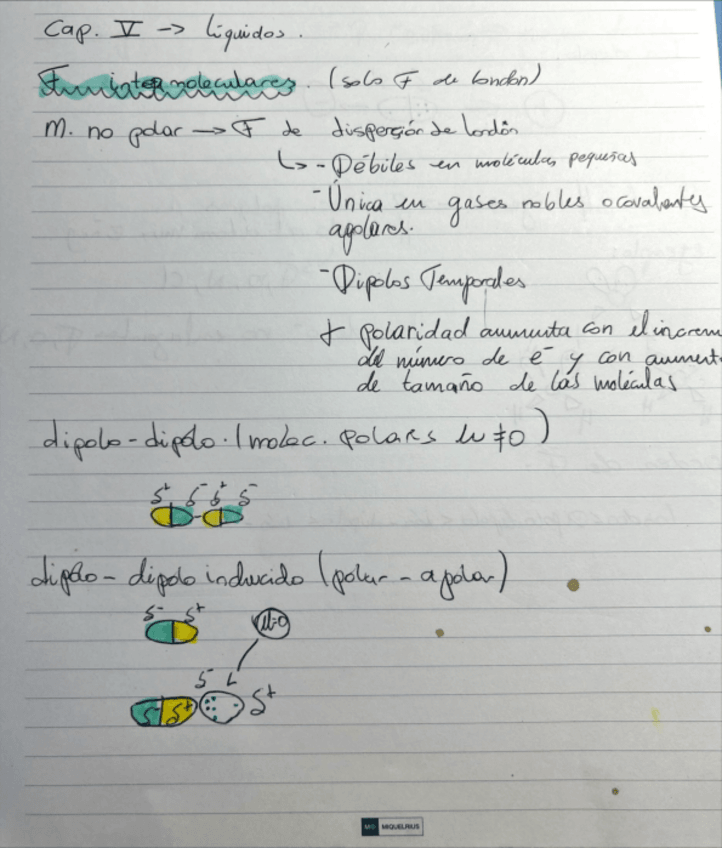 Cap. V -> Líquidos.
F intermoleculares. (solo F de london)
M. no polar -> F de disperción de london
↳ - Débiles en moléculas pequeñas
- Única en gases nobles o covalentes
apolares.
- Dipolos Temporales
+ polaridad aumenta con el increm
del número de e⁻ y con aument
de tamaño de las moléculas
dipolo - dipolo. (molec. polars u ≠ 0)
δ+ δ- δ+ δ-
dipolo - dipolo inducido (polar - apolar)
δ- δ+ u=0
δ-
δ- δ+ δ+
MR MIQUELRIUS